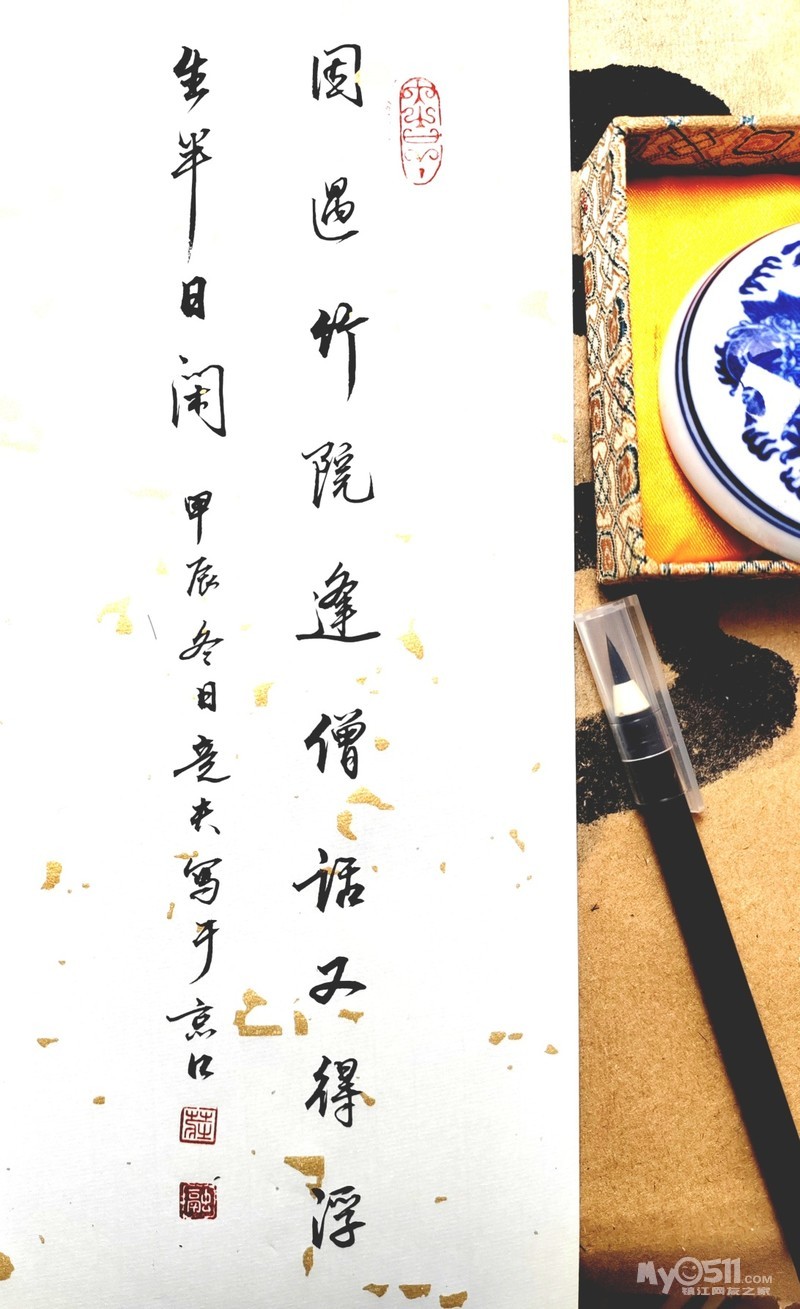 因過竹院逢僧话又得浮
生半日闲
甲辰冬日竟夫写于京口
My0511.COM
镇江网友之家